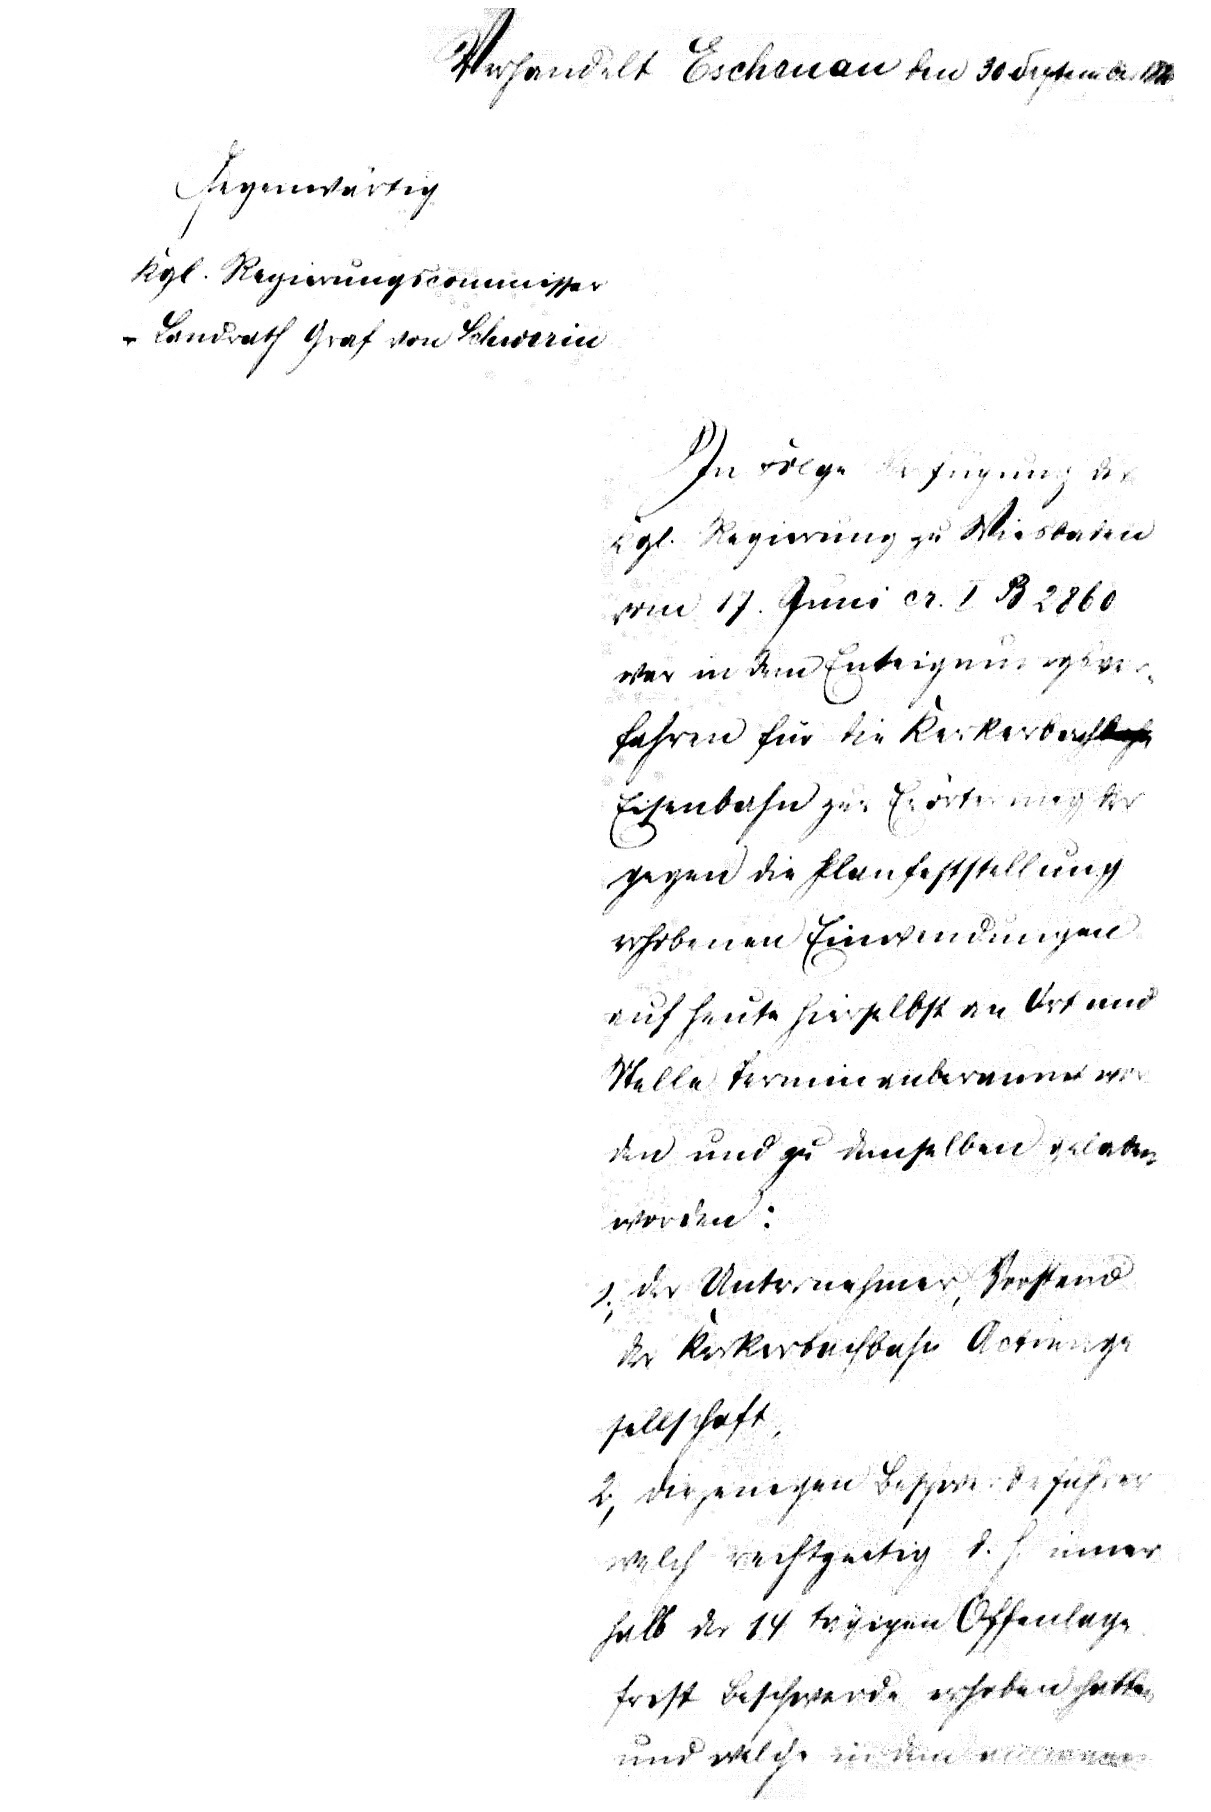 Verhandelt Eschenau den 30 September
Gegenwärtig
Kgl. Regierungscommissar
- Landrath Graf von Schwerin
In Folge Verfügung der
Kgl. Regierung zu Wiesbaden
vom 17. Juni cr. I B 2860
war in dem Enteignungsver-
fahren für die Kerkerbach
Eisenbahn zur Erörterung der
gegen die Planfeststellung
erhobenen Einwendungen
auf heute hierselbst an Ort und
Stelle Termin anberaumt wor
den und zu demselben geladen
worden:
1, der Unternehmer, Vorstand
der Kerkerbachbahn Actienge
sellschaft,
2, diejenigen Beschwerdeführer
welch rechtzeitig d. h. inner
halb der 14 tägigen Offenlage
frist Beschwerde erhoben hatten
und welche in dem